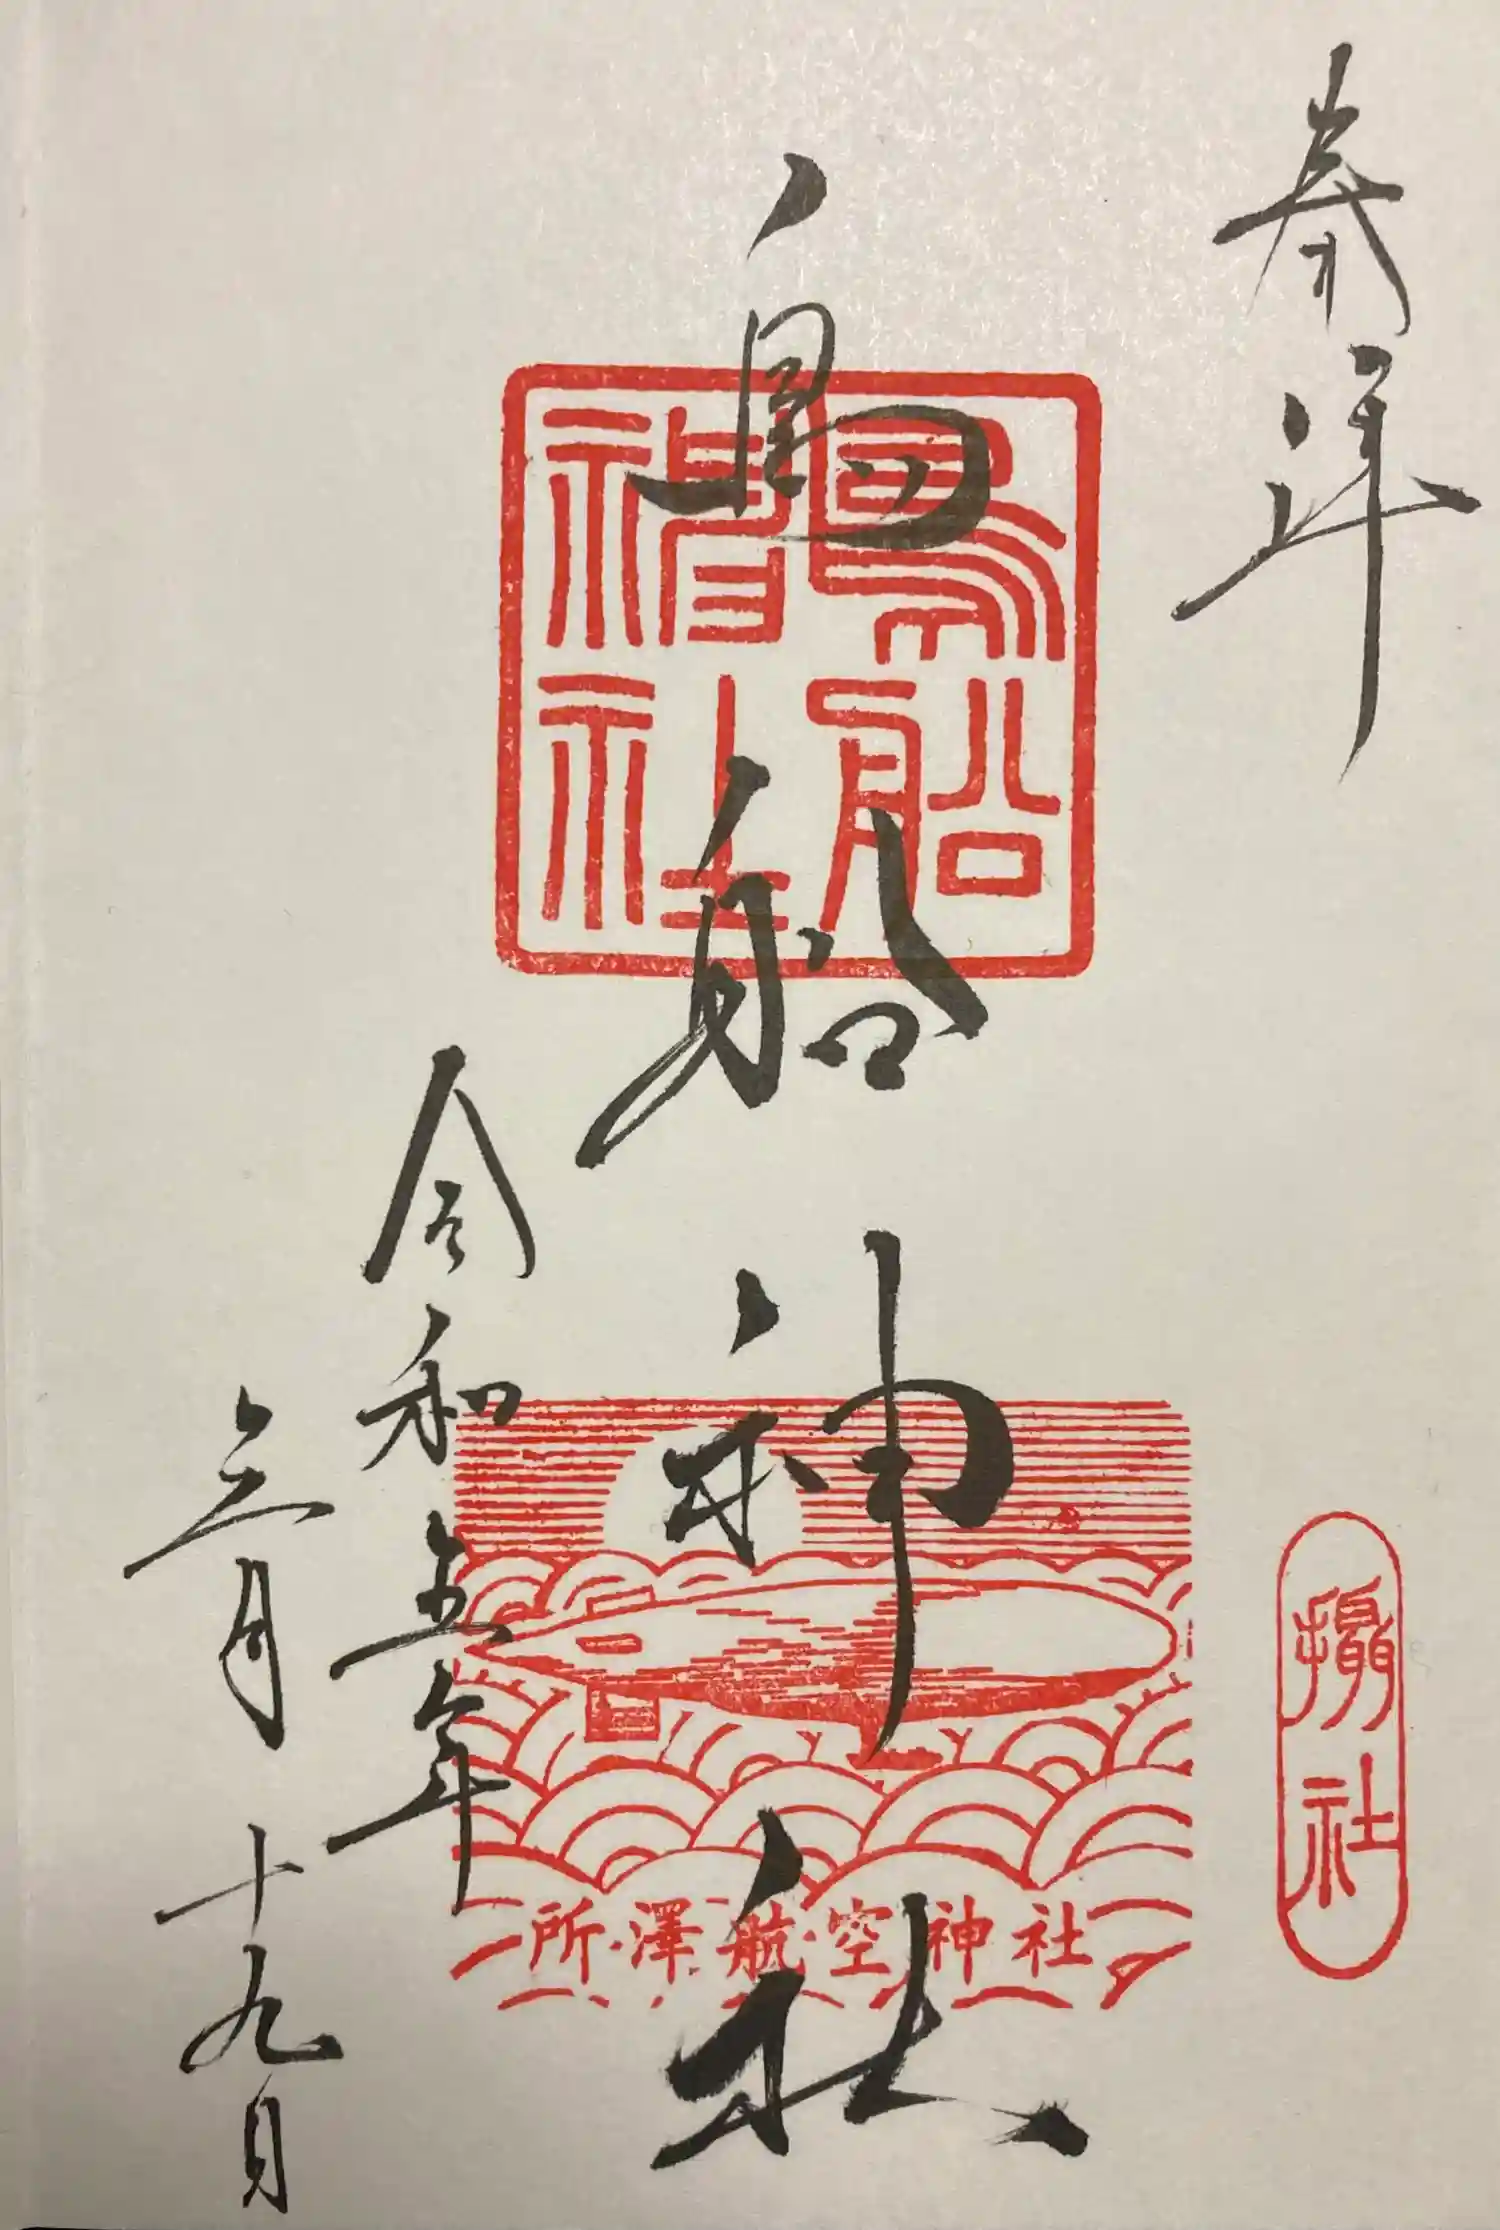 奉拝
鳥船神社
鳥船
神社
令和五年
三月十九日
所澤航空神社
摂社